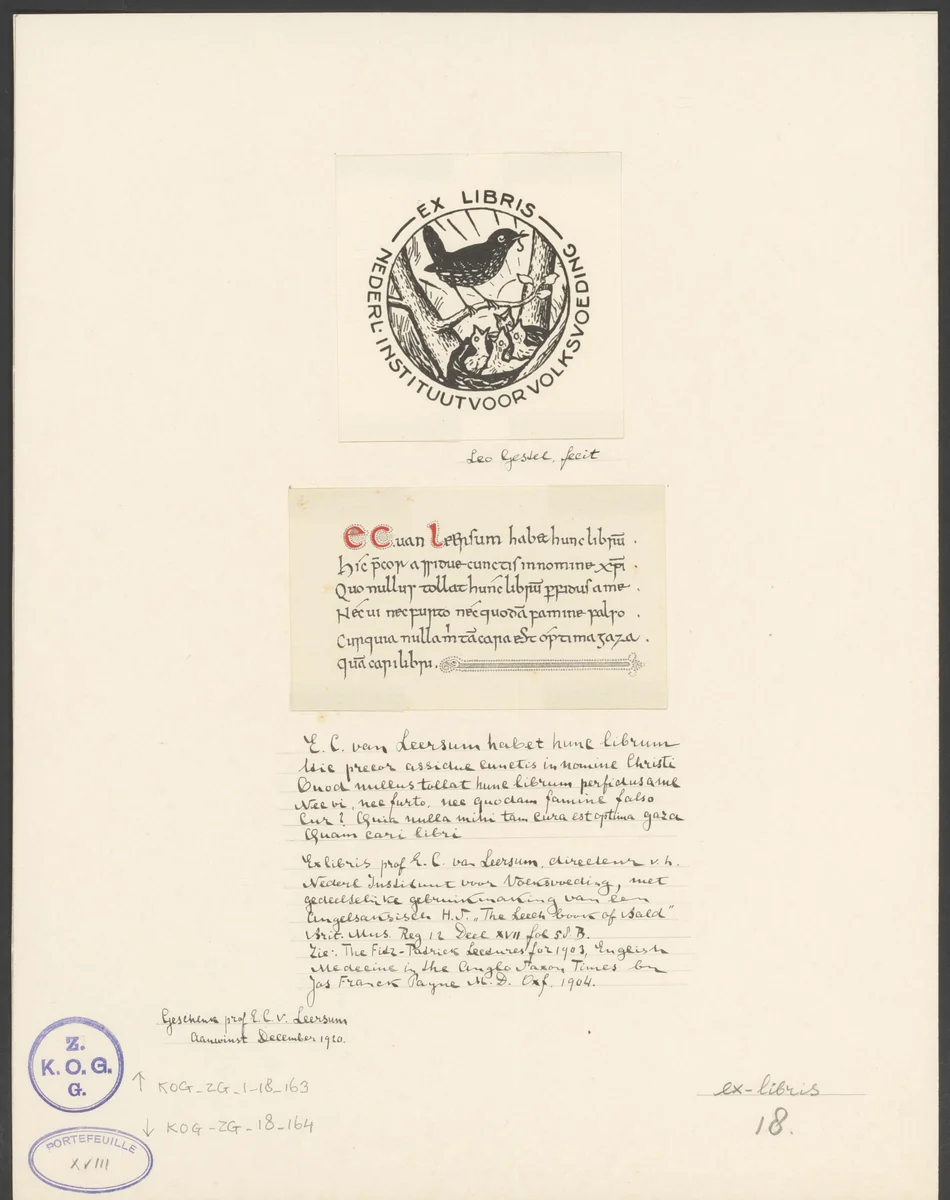 EX LIBRIS
NEDERL: INSTITUUT VOOR VOLKSVOEDING
Leo Gestel, fecit
EC. uan Leersum habet hunc libru̅ .
hic p̅cor assidue cunctis in nomine xp̅i .
Quo nullus tollat hunc libru̅ p̱fidus a me .
Nec ui nec furto nec quoda̅ famine falso .
Cur quia nulla m̅ ta̅ cara est optima gaza .
qua̅ cari libri .
E. C. van Leersum habet hunc librum
Hic precor assidue cunctis in nomine Christi
Quod nullus tollat hunc librum perfidus a me
Nec vi, nec furto, nec quodam famine falso
Cur? Quia nulla mihi tam cura est optima gaza
Quam cari libri
Exlibris prof E. C. van Leersum, directeur v. h.
Nederl Instituut voor Volksvoeding, met
gedeeltelijke gebruikmaking van een
Angelsaksisch H.S. „The Leech book of Bald"
Brit. Mus. Reg 12 Deel XVII fol 58. B.
Zie: The Fitz-Patrick Lectures for 1903, English
Medecine in the Anglo Saxon Times by
Jos Franck Payne M. D. Oxf. 1904.
Geschenk prof E. C. v. Leersum
Aanwinst December 1920.
Z.
K. O. G.
G.
↑ KOG-ZG-1-18-163
↓ KOG-ZG-18-164
ex-libris
18.
PORTEFEUILLE
XVIII